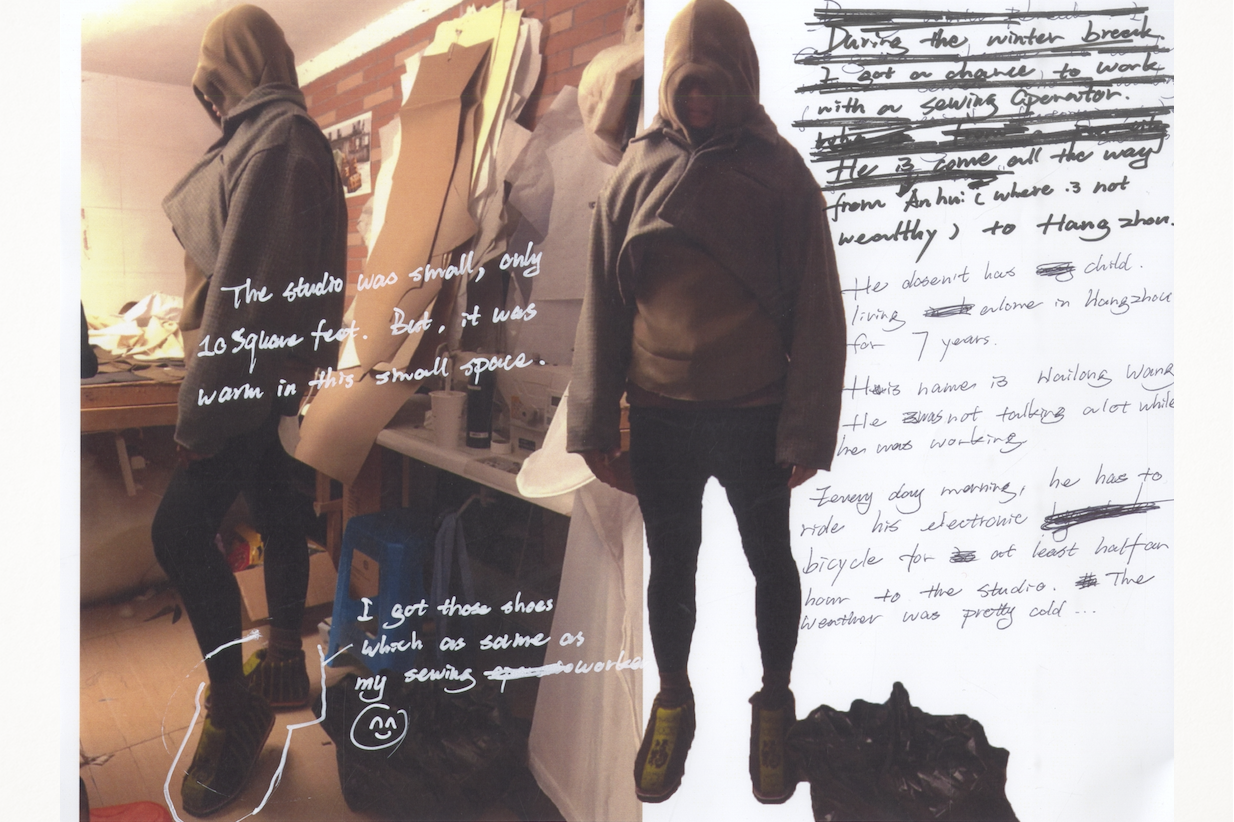 The studio was small, only
10 square feet. But, it was
warm in this small space.
I got those shoes
which as same as
my sewing worke
During the winter break
I got a chance to work
with a sewing operator.
He is come all the way
from Anhui (where is not
wealthy) to Hangzhou.
He dosen't has child.
living alone in Hangzhou
for 7 years.
His name is Wailong Wang
He was not talking alot while
he was working
Every day morning, he has to
ride his electronic
bicycle for at least half an
hour to the studio. The
weather was pretty cold ...
福
福